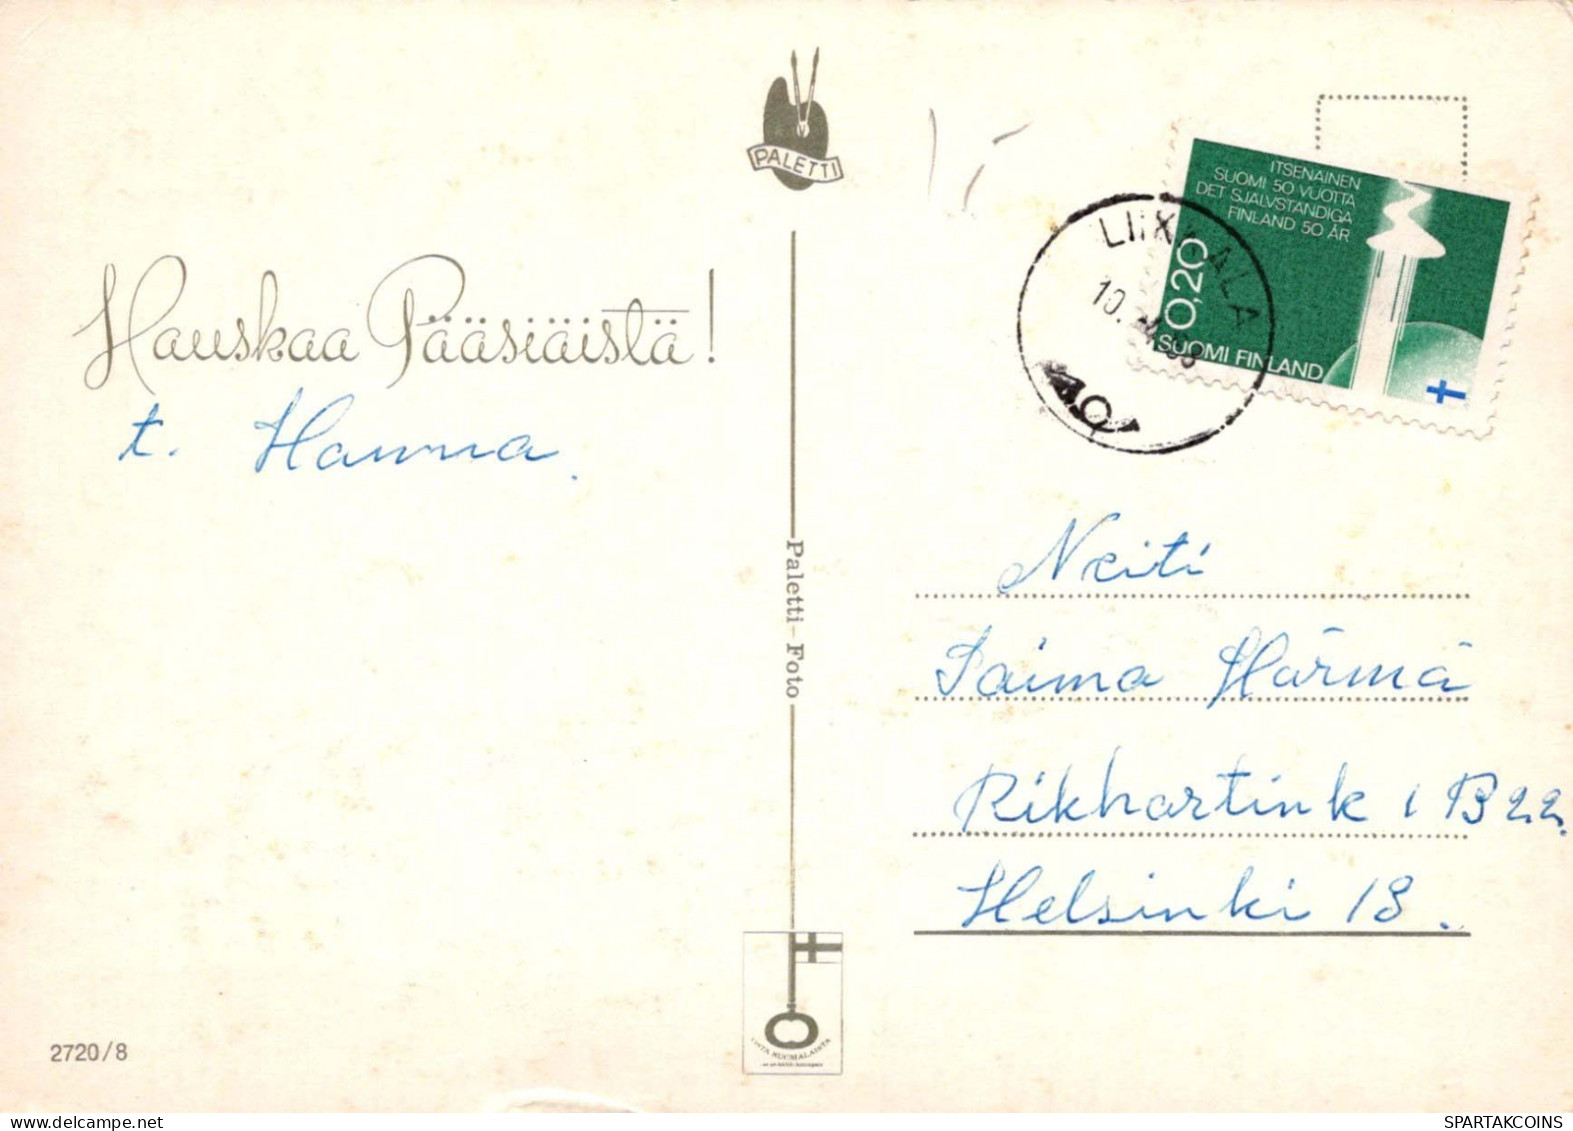 PALETTI
ITSENÄINEN
SUOMI 50 VUOTTA
DET SJÄLVSTÄNDIGA
FINLAND 50 ÅR
0,20
SUOMI FINLAND
LIIKKALA
10.
Hauskaa Pääsiäistä!
t. Hanna.
Paletti-Foto
Neiti
Saima Härmä
Rikhartink 1 B 22.
Helsinki 18.
SUOMALAISTA
2720/8
WWW.DELCAMPE.NET
SPARTAKCOINS